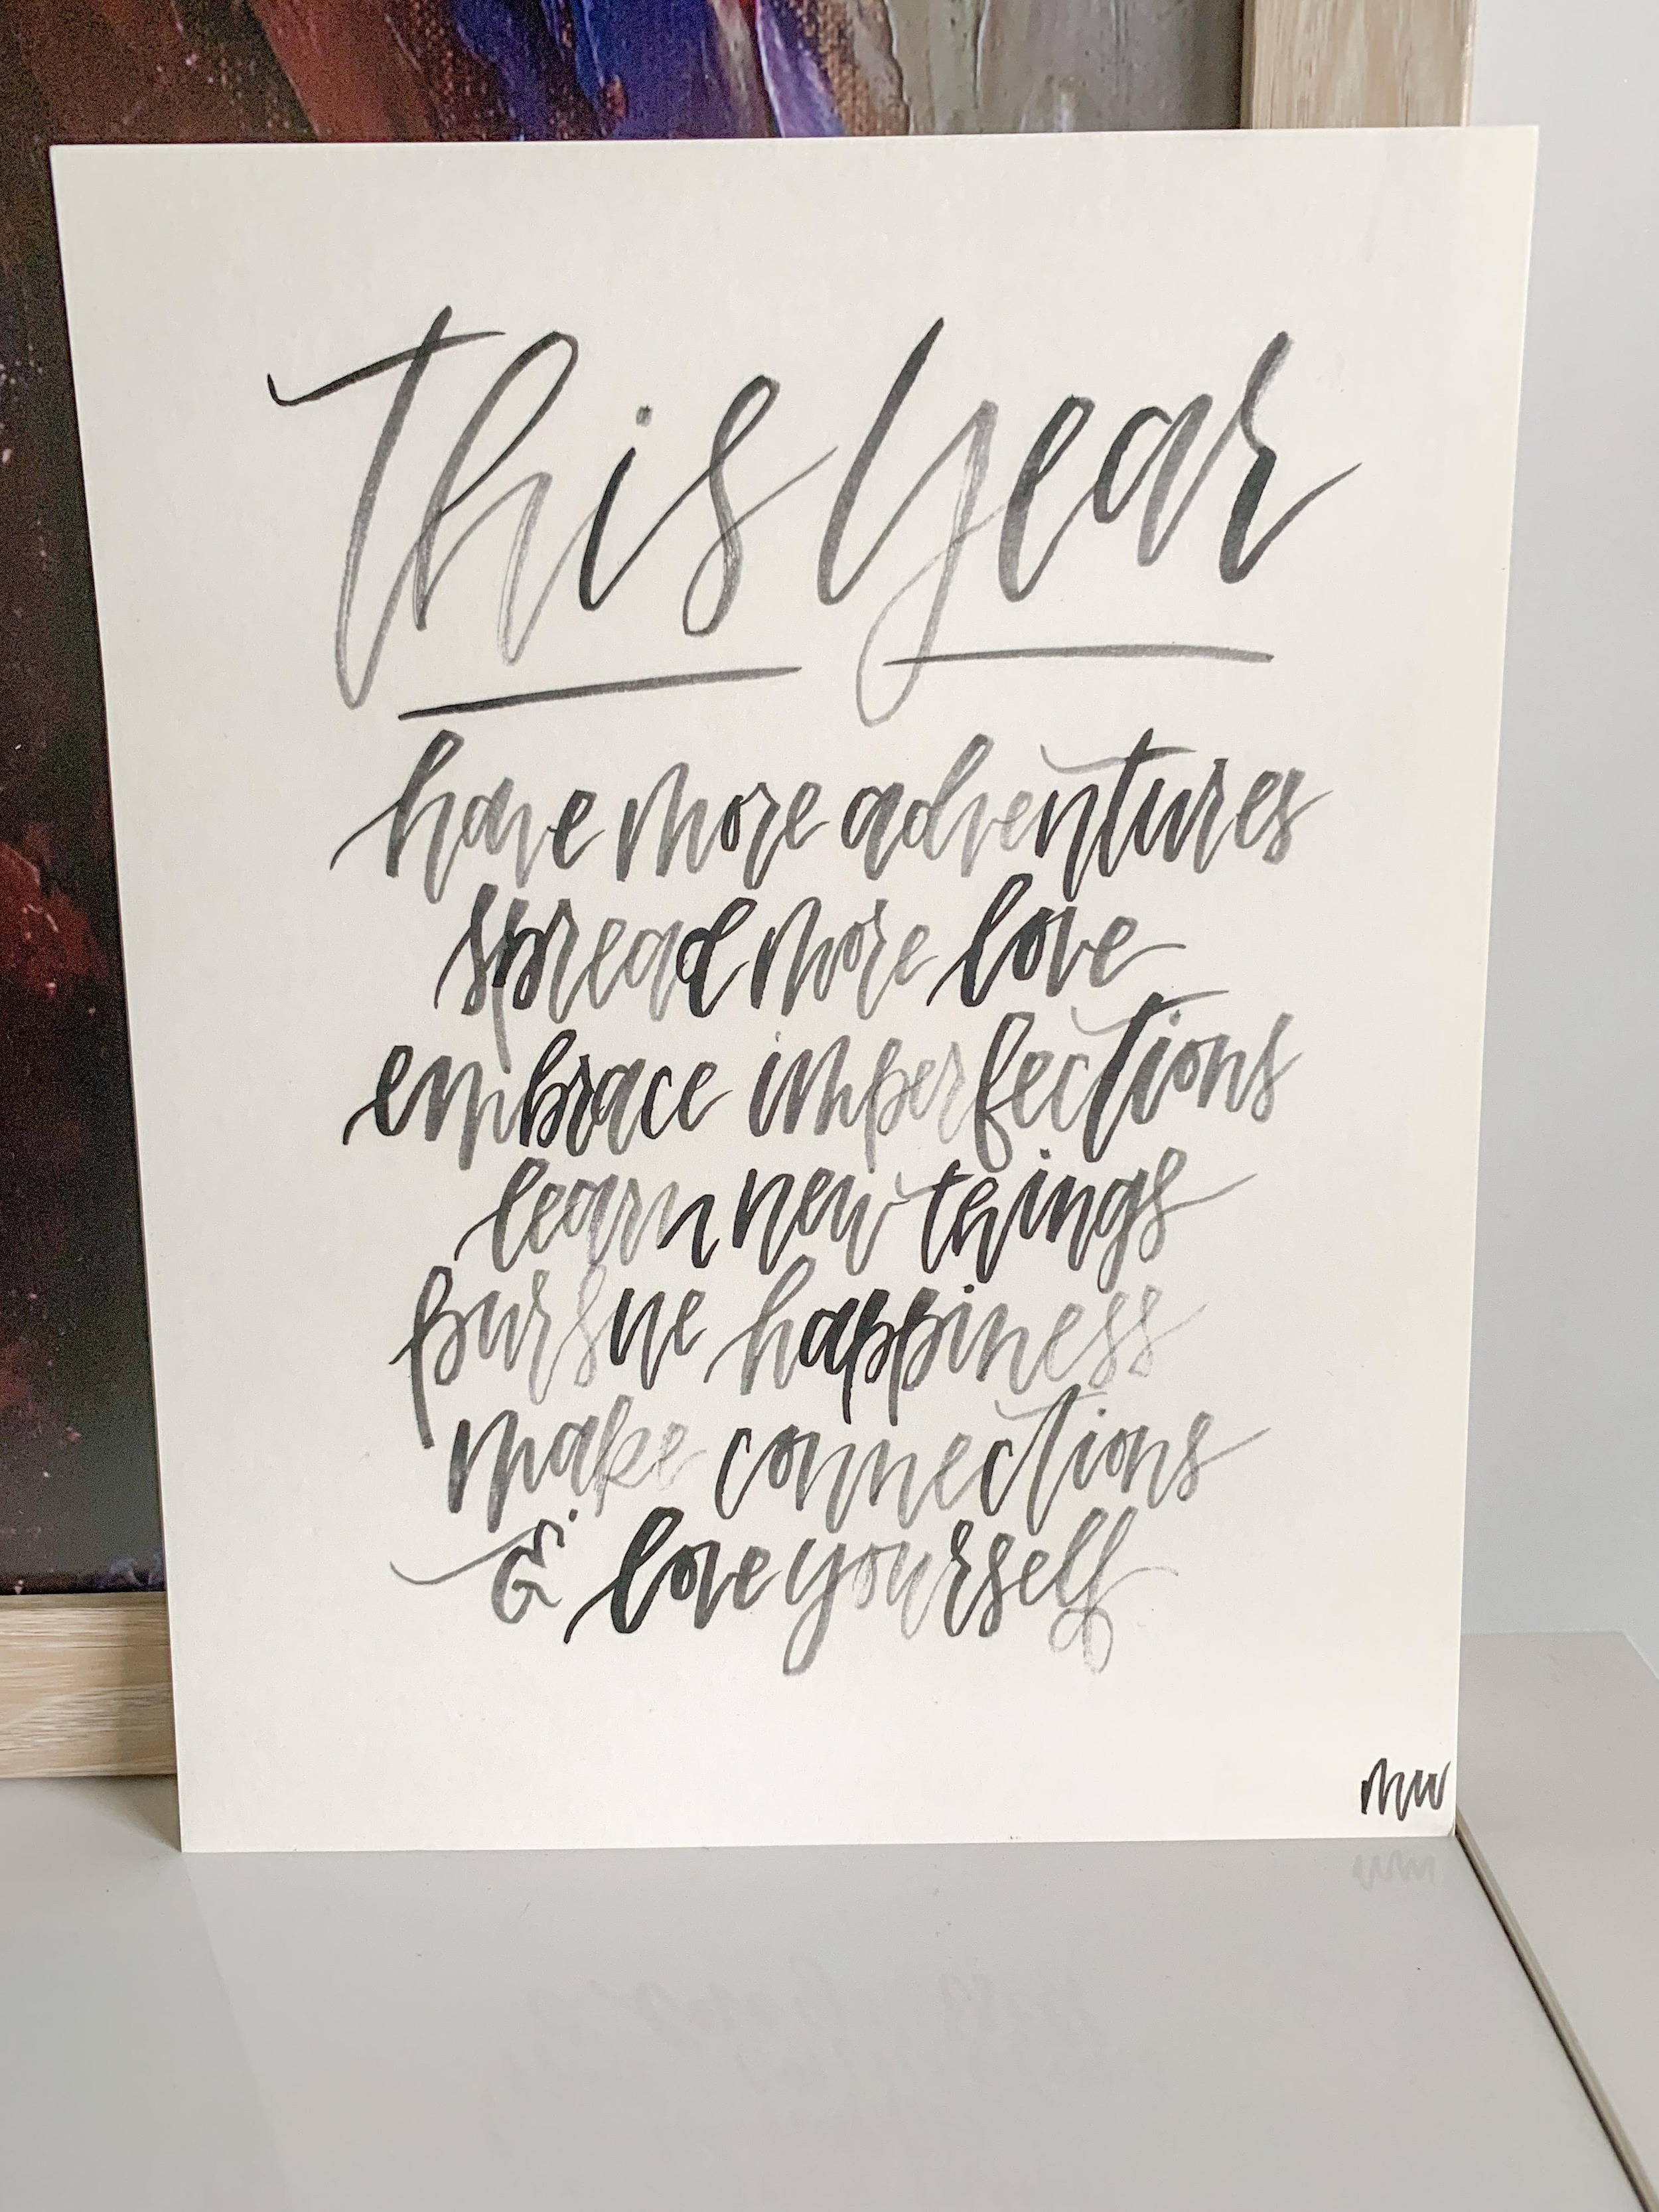 this year
have more adventures
spread more love
embrace imperfections
learn new things
pursue happiness
make connections
& love yourself
mw